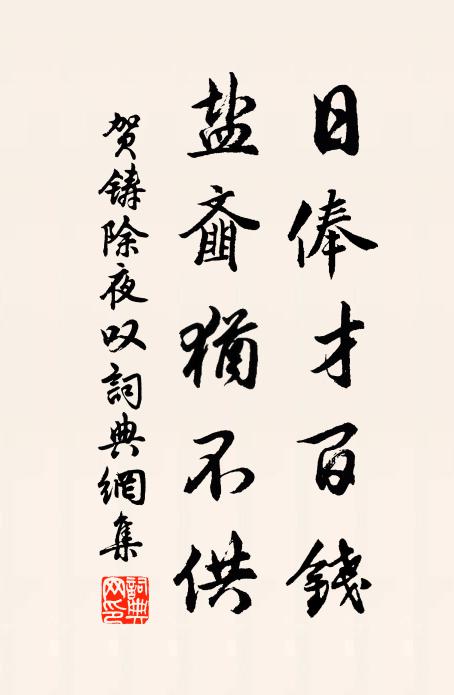 日俸才百錢
盐齑猶不供
贺鋳除夜叹詞典網集
詞典网印